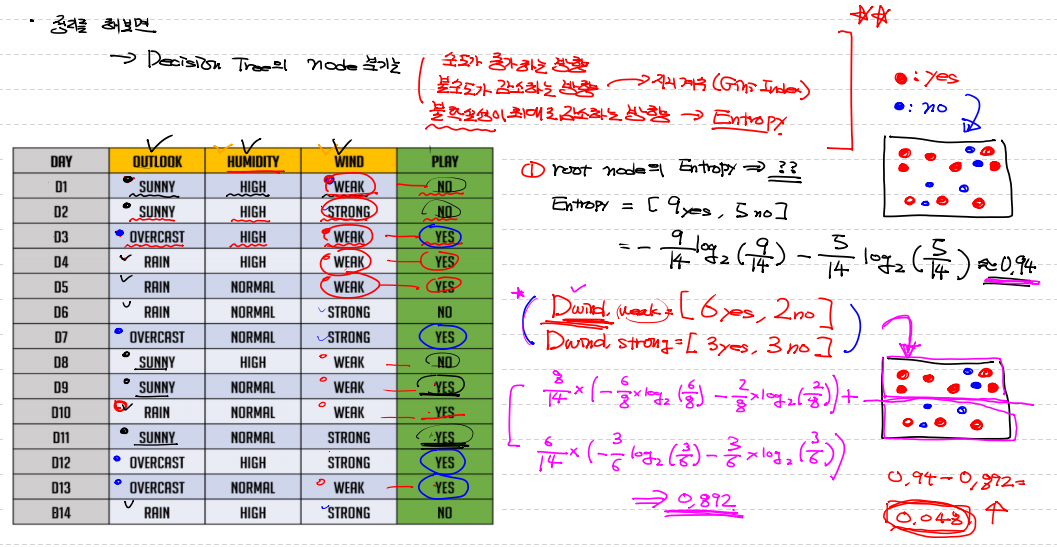 · 정리를 해보면
→ Decision Tree의 node 분기는
순도가 증가하는 방향
불순도가 감소하는 방향 → 지니 계수 (Gini Index)
불확실성이 최대로 감소하는 방향 → Entropy
: yes
: no
DAY OUTLOOK HUMIDITY WIND PLAY
D1 SUNNY HIGH WEAK NO
D2 SUNNY HIGH STRONG NO
D3 OVERCAST HIGH WEAK YES
D4 RAIN HIGH WEAK YES
D5 RAIN NORMAL WEAK YES
D6 RAIN NORMAL STRONG NO
D7 OVERCAST NORMAL STRONG YES
D8 SUNNY HIGH WEAK NO
D9 SUNNY NORMAL WEAK YES
D10 RAIN NORMAL WEAK YES
D11 SUNNY NORMAL STRONG YES
D12 OVERCAST HIGH STRONG YES
D13 OVERCAST NORMAL WEAK YES
B14 RAIN HIGH STRONG NO
① root node의 Entropy ⇒ ??
Entropy = [9yes, 5no]
= - 9/14 log₂(9/14) - 5/14 log₂(5/14) ≈ 0.94
* Dwind, weak = [6yes, 2no]
Dwind strong = [3yes, 3no]
8/14 × (-6/8 × log₂(6/8) - 2/8 × log₂(2/8)) +
6/14 × (-3/6 log₂(3/6) - 3/6 × log₂(3/6))
⇒ 0,892
0,94 - 0,892 =
0,048 ↑